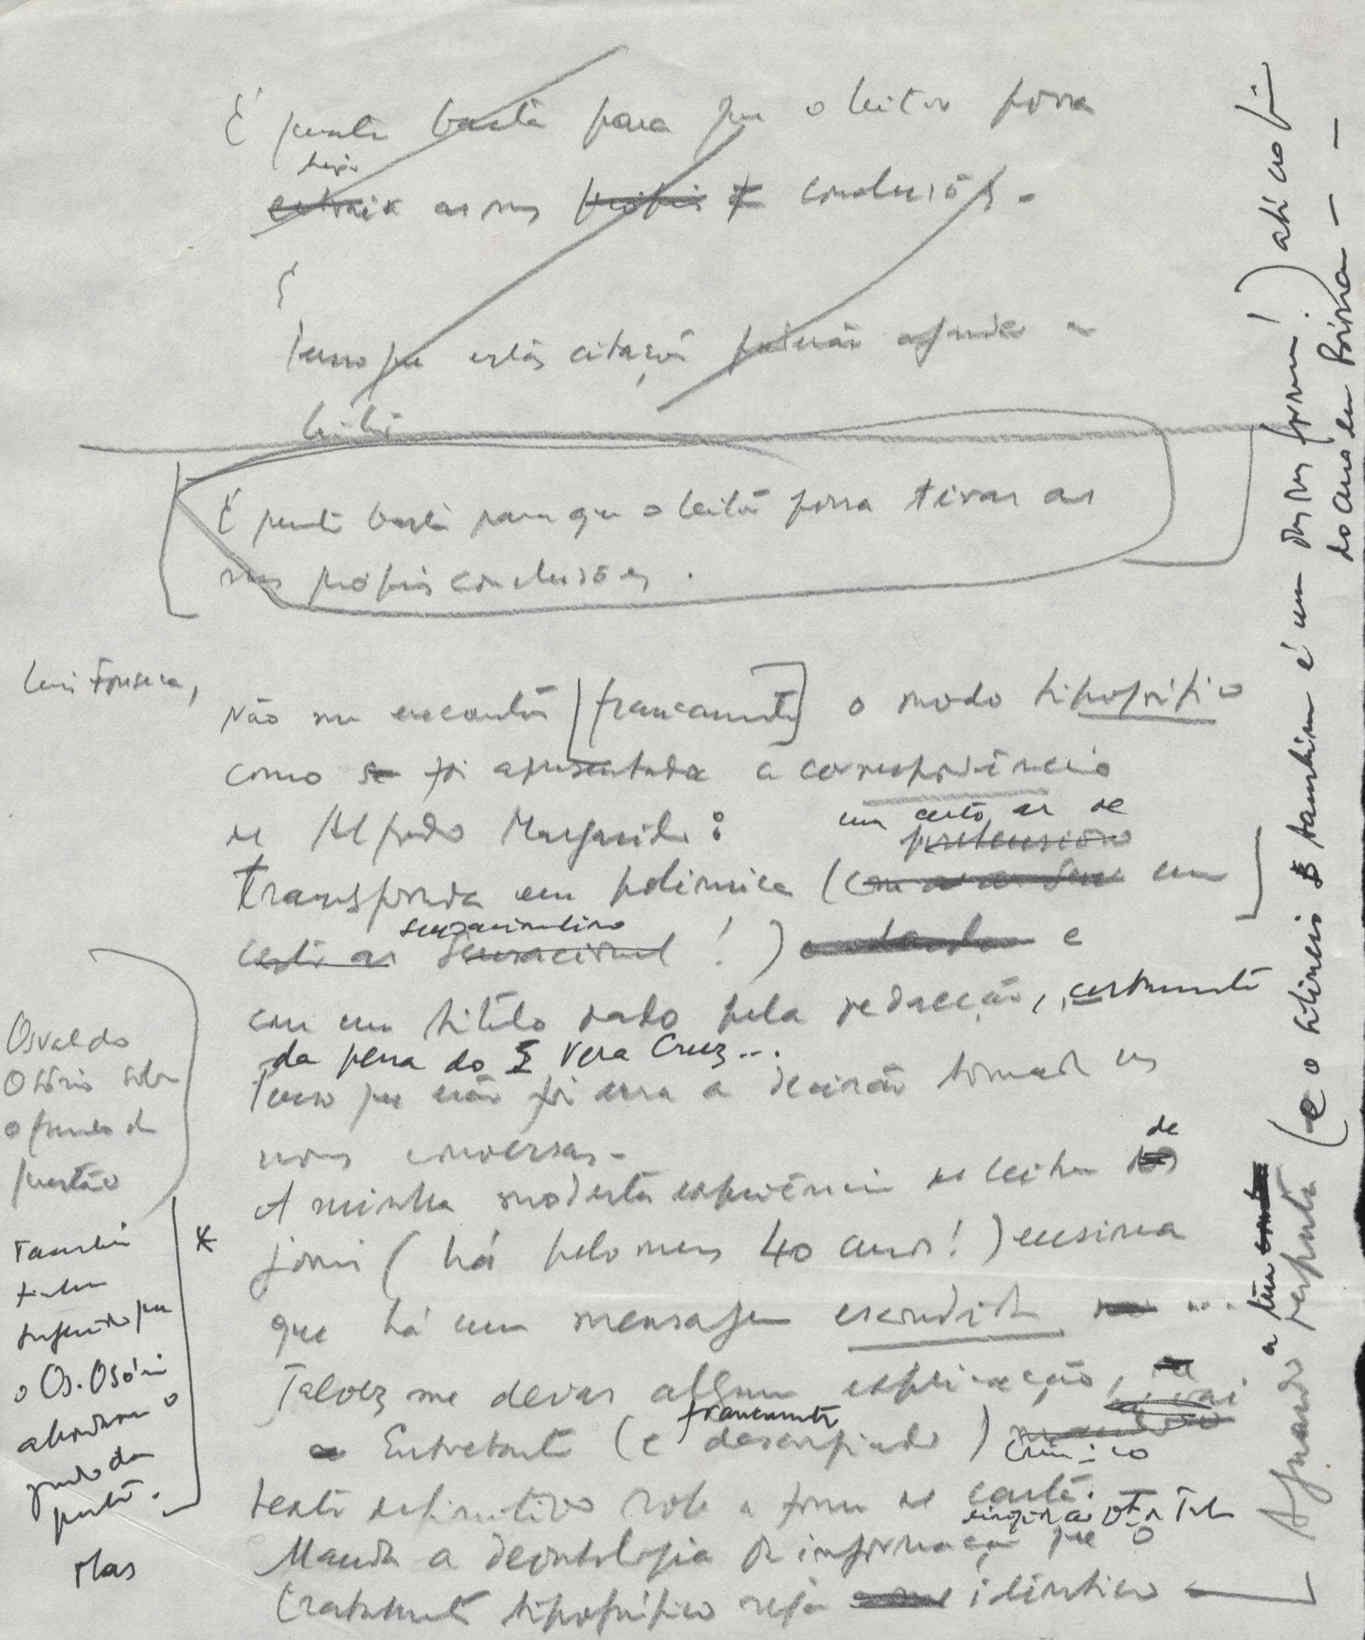 É quanto basta para que o leitor possa
tirar
extrair as suas próprias conclusões.
É
Penso que estas citações poderão ajudar o
leitor
É quanto basta para que o leitor possa tirar as
suas próprias conclusões.
Luís Fonseca,
Não me encantou [francamente] o modo tipográfico
como se foi apresentada a correspondência
de Alfredo Margarido:
um certo ar de
pretensioso
transformada em polémica (com
certo ar sensacional!) e
sensacionalismo
com um título dado pela redacção, certamente
da pena do S Vera Cruz...
Penso que não foi essa a decisão tomada em
nossas conversas.
A minha modesta experiência de leitor de
jornais (há pelo menos 40 anos!) ensina
que há uma mensagem escondida ...
Talvez me devas alguma explicação,
Entretanto (e francamente desconfiado) envio o
texto definitivo sob a forma de carta.
Manda a deontologia da informação que o
tratamento tipográfico seja idêntico
Osvaldo
Osório sobre
o fundo da
questão
Também
tinha
sugerido que
o Os. Osório
abordasse o
fundo da
questão.
Mas
*
Aguardo a tua resposta (e o silêncio também é uma das suas formas!) até ao fim
do ano em Roma — —